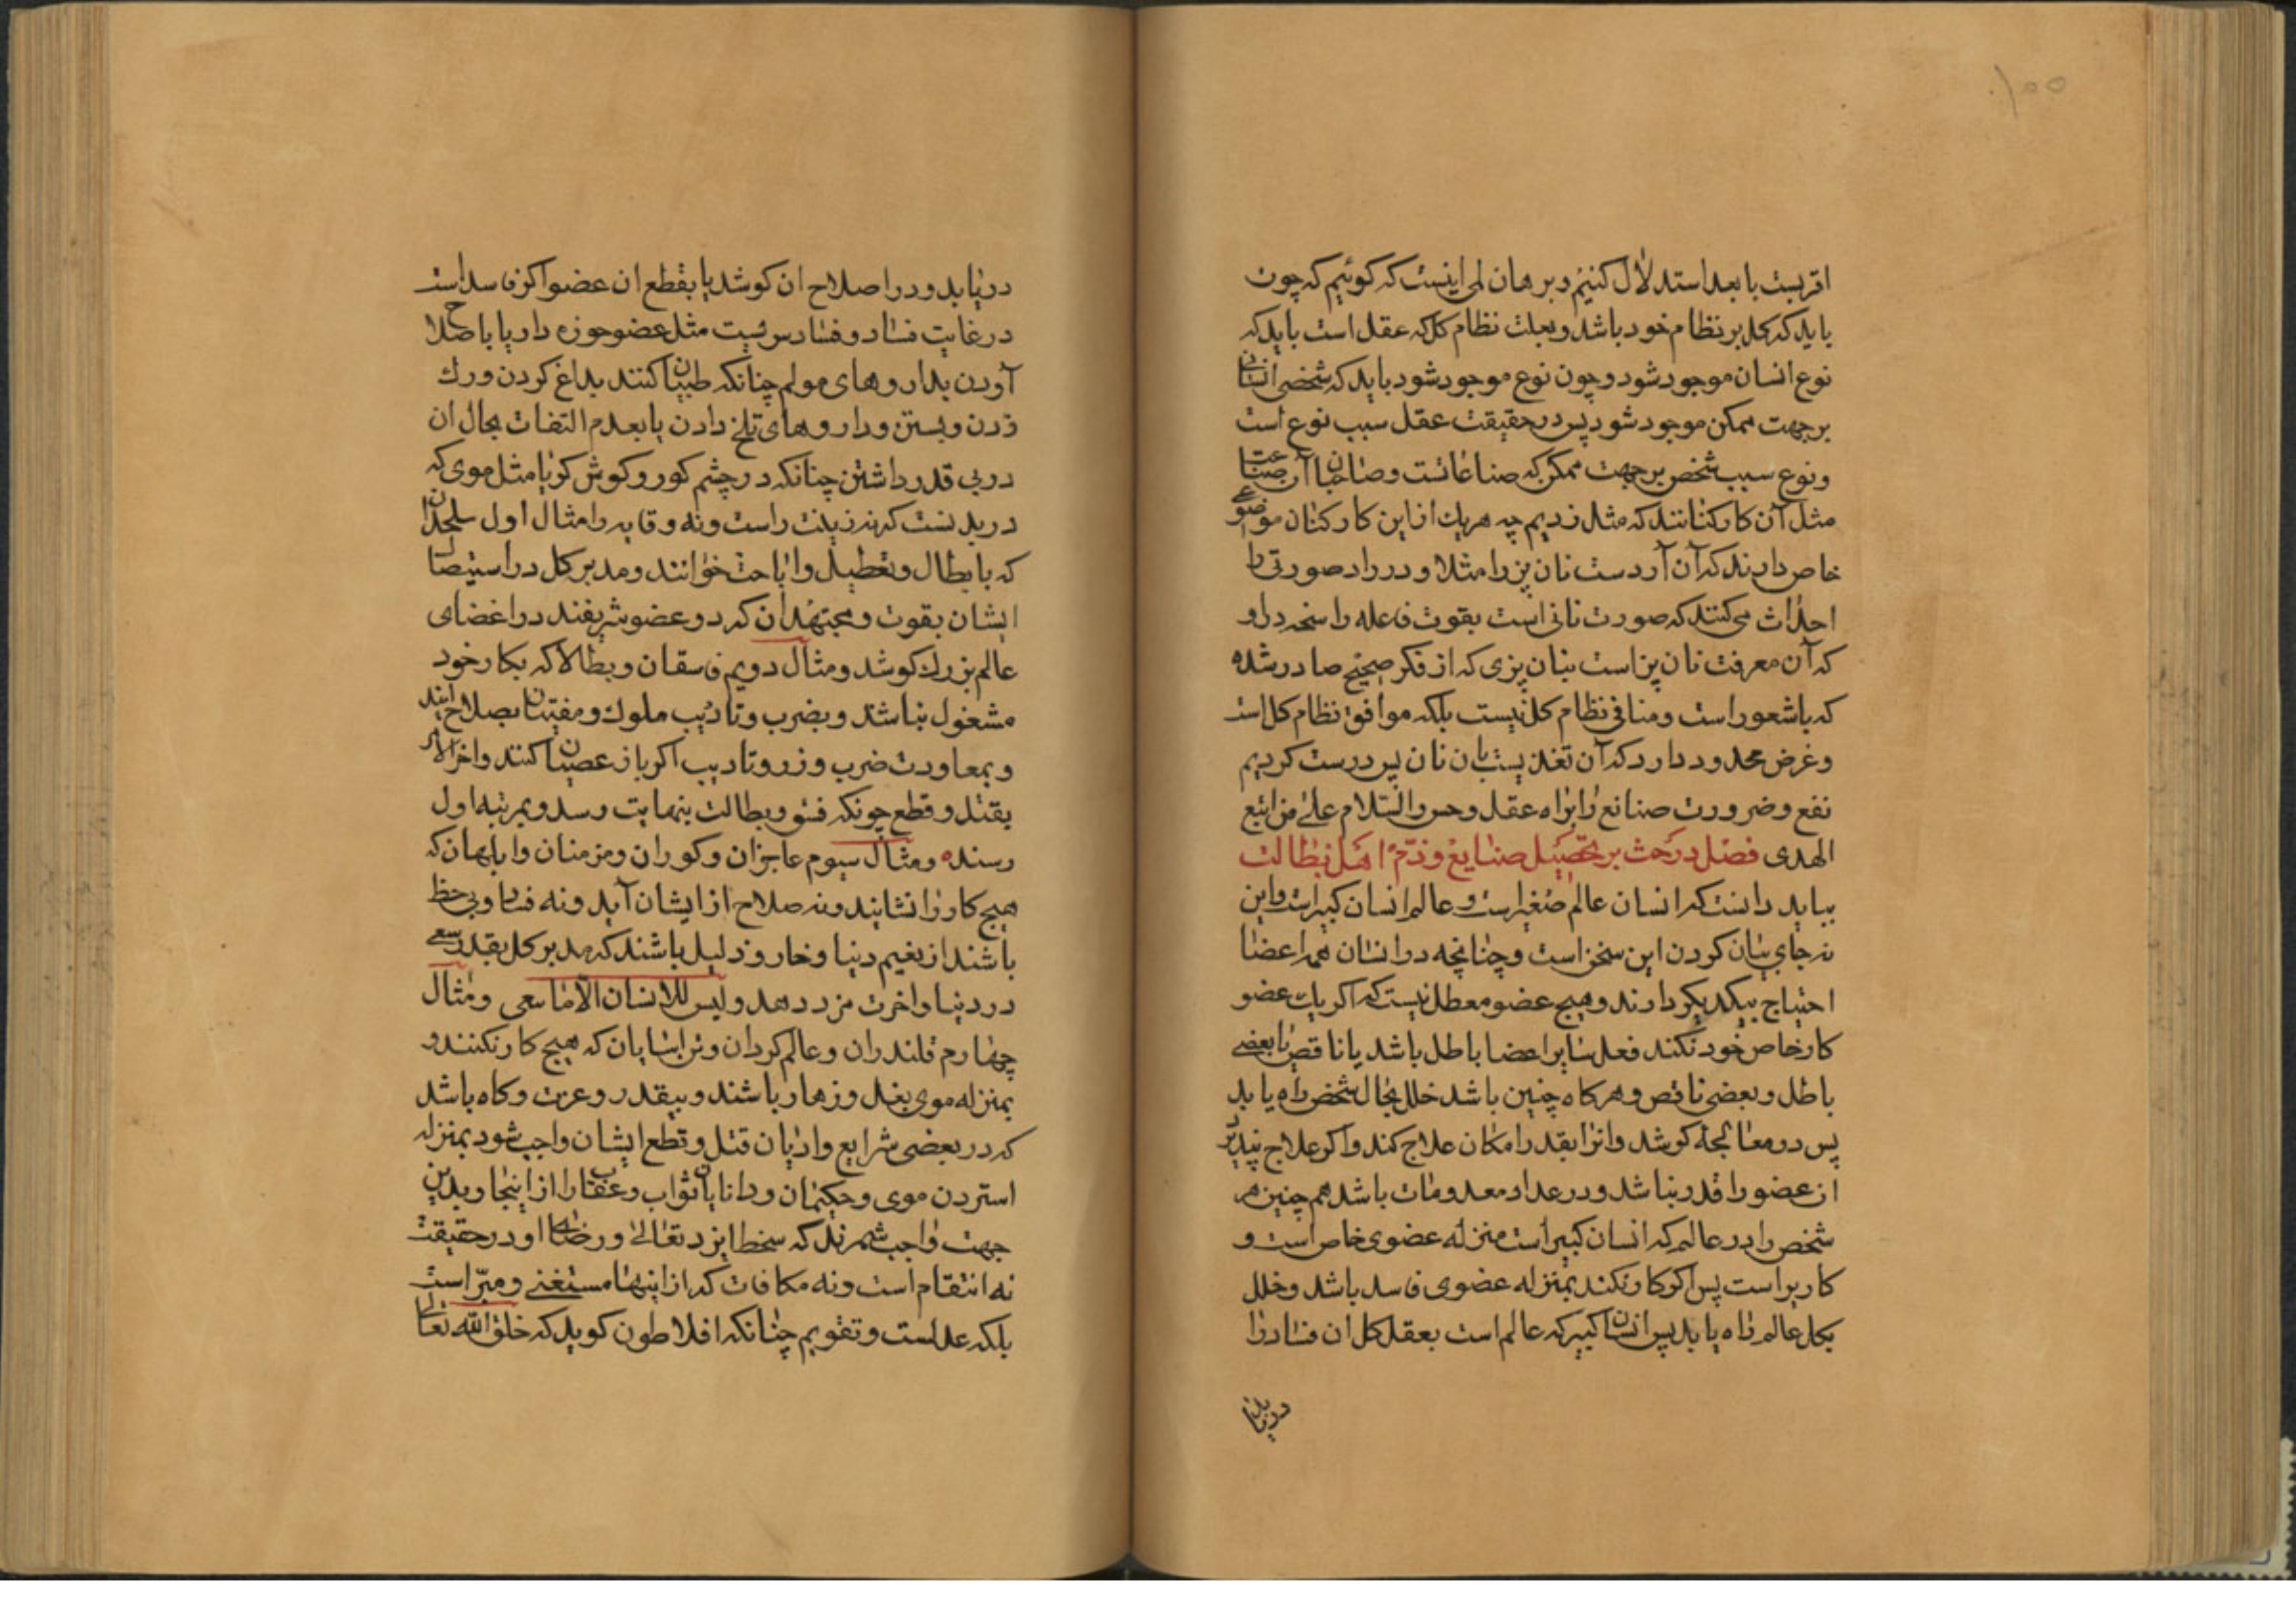 ۱۰۰
اقربست با بعد استدلال کنیم و برهان لمی اینست که کوئیم که چون
باید که کل بر نظام خود باشد و بعلت نظام کل که عقل است باید که
نوع انسان موجود شود و چون نوع موجود شود باید که شخص انسان
بر جهت ممکن موجود شود پس در حقیقت عقل سبب نوع است
و نوع سبب شخص بر جهت ممکن که صناعاتست و صاحبان آن صناعت
مثل آن کارکنانند که مثل زدیم چه هر یک از این کارکنان موضوعی
خاص دارند که آن آردست نان پز را مثلا و در راد صورتی را
احداث می کنند که صورت نانی است بقوت فاعله راسخه در او
که آن معرفت نان پز است بنان پزی که از فکر صحیح صادر شده
که باشعور است و منافی نظام کل نیست بلکه موافق نظام کل است
و غرض محدود دارد که آن تغذیست بان نان پس درست کردیم
نفع و ضرورت صنایع را براه عقل و حس والسّلام علی من اتبع
الهدی فصل در حث بر تحصیل صنایع و ذمّ اهل بطالت
بباید دانست که انسان عالم صغیر است و عالم انسان کبیر است و این
نه جای بیان کردن این سخن است و چنانچه در انسان همه اعضا
احتیاج بیکدیکر دارند و هیچ عضو معطل نیست که اکر یک عضو
کار خاص خود نکند فعل سایر اعضا باطل باشد یا ناقص یا بعضی
باطل و بعضی ناقص و هر کاه چنین باشد خلل بحال شخص راه یابد
پس در معالجه کوشد و انرا بقدر امکان علاج کند و اکر علاج نپذیر
ان عضو را قدر نباشد و در عداد معدومات باشد هم چنین هر
شخص را در عالم که انسان کبیر است منزله عضوی خاص است و
کار براست پس اکر کار نکند بمنزله عضوی فاسد باشد و خلل
بکل عالم راه یابد پس انسان کبیر که عالم است بعقل کل ان فساد را
دریابد
دریابد و در اصلاح ان کوشد یا بقطع ان عضو اکر فاسد است
در غایت فساد و فسادس نیست مثل عضو خوزه دار یا باصلاح
آوردن بداروهای مولم چنانکه طبیبان کنند بداغ کردن و رک
زدن و بستن و داروهای تلخ دادن یا بعدم التفات بحال ان
در بی قدر داشتن چنانکه در چشم کور و کوش کر یا مثل موی که
در بدنست که نه زینت راست و نه وقایه را مثال اول ملحدان
که بابطال و تعطیل و اباحت خوانند و مدبر کل در استیصال
ایشان بقوت و مجتهدان که دو عضو شریفند در اعضای
عالم بزرک کوشد و مثال دویم فاسقان و بطالا که بکار خود
مشغول نباشند و بضرب و تادیب ملوک و مفتیان بصلاح ایند
و بمعاودت ضرب و زر و تادیب اکر باز عصیان کنند و اخر الامر
بقتل و قطع چونکه فسق و بطالت بنهایت رسد و بمرتبه اول
رسنده و مثال سیوم عاجزان و کوران و مزمنان و ابلهان که
هیچ کار را نشایند و نه صلاح از ایشان آید و نه فساد و بی حظ
باشند از نعیم دنیا و خار و ذلیل باشند که مدبر کل بقدر سعی
در دنیا و اخرت مزد دهد و لیس للانسان الّا ما سعی و مثال
چهارم قلندران و عالم کردان و تن اسایان که هیچ کار نکنند و
بمنزله موی بغل و زهار باشند و بیقدر و عزت و کاه باشد
که در بعضی شرایع و ادیان قتل و قطع ایشان واجب شود بمنزله
استردن موی و حکیمان و دانایان ثواب و عقاب را از اینجا و بدین
جهت واجب شمرند که سخط ایزد تعالی و رضای او در حقیقت
نه انتقام است و نه مکافات که از اینها مستغنی و مبرّاست
بلکه عدلست و تقویم چنانکه افلاطون کوید که خلق الله تعالی